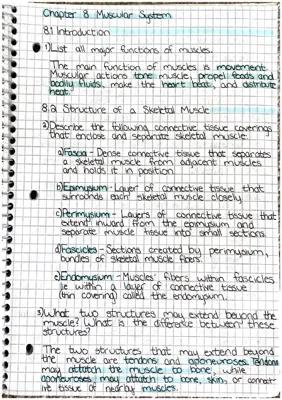 Chapter 8 Muscular System
8.1 Introduction
1) List all major functions of muscles.
The main function of muscles is movement.
Muscular actions tone muscle, propel foods and
bodily fluids, make the heart beat, and distribute
heat.
8.2 Structure of a Skeletal Muscle
2) Describe the following connective tissue coverings
that enclose and separate skeletal muscle.
a) Fascia - Dense connective tissue that separates
a skeletal muscle from adjacent muscles
and holds it in position
b) Epimysium - Layer of connective tissue that
surrounds each skeletal muscle closely
c) Perimysium - Layers of connective tissue that
extend inward from the epimysium and
separate muscle tissue into small sections.
d) Fascicles - Sections created by perimysium,
bundles of skeletal muscle fibers.
e) Endomysium - Muscles' fibers within fascicles
lie within a layer of connective tissue
(thin covering) called the endomysium.
3) What two structures may extend beyond the
muscle? What is the difference between these
structures?
The two structures that may extend beyond
the muscle are tendons and aponeuroses. Tendons
may attach the muscle to bone, while
aponeuroses may attach to bone, skin, or connect-
ive tissue of nearby muscles.